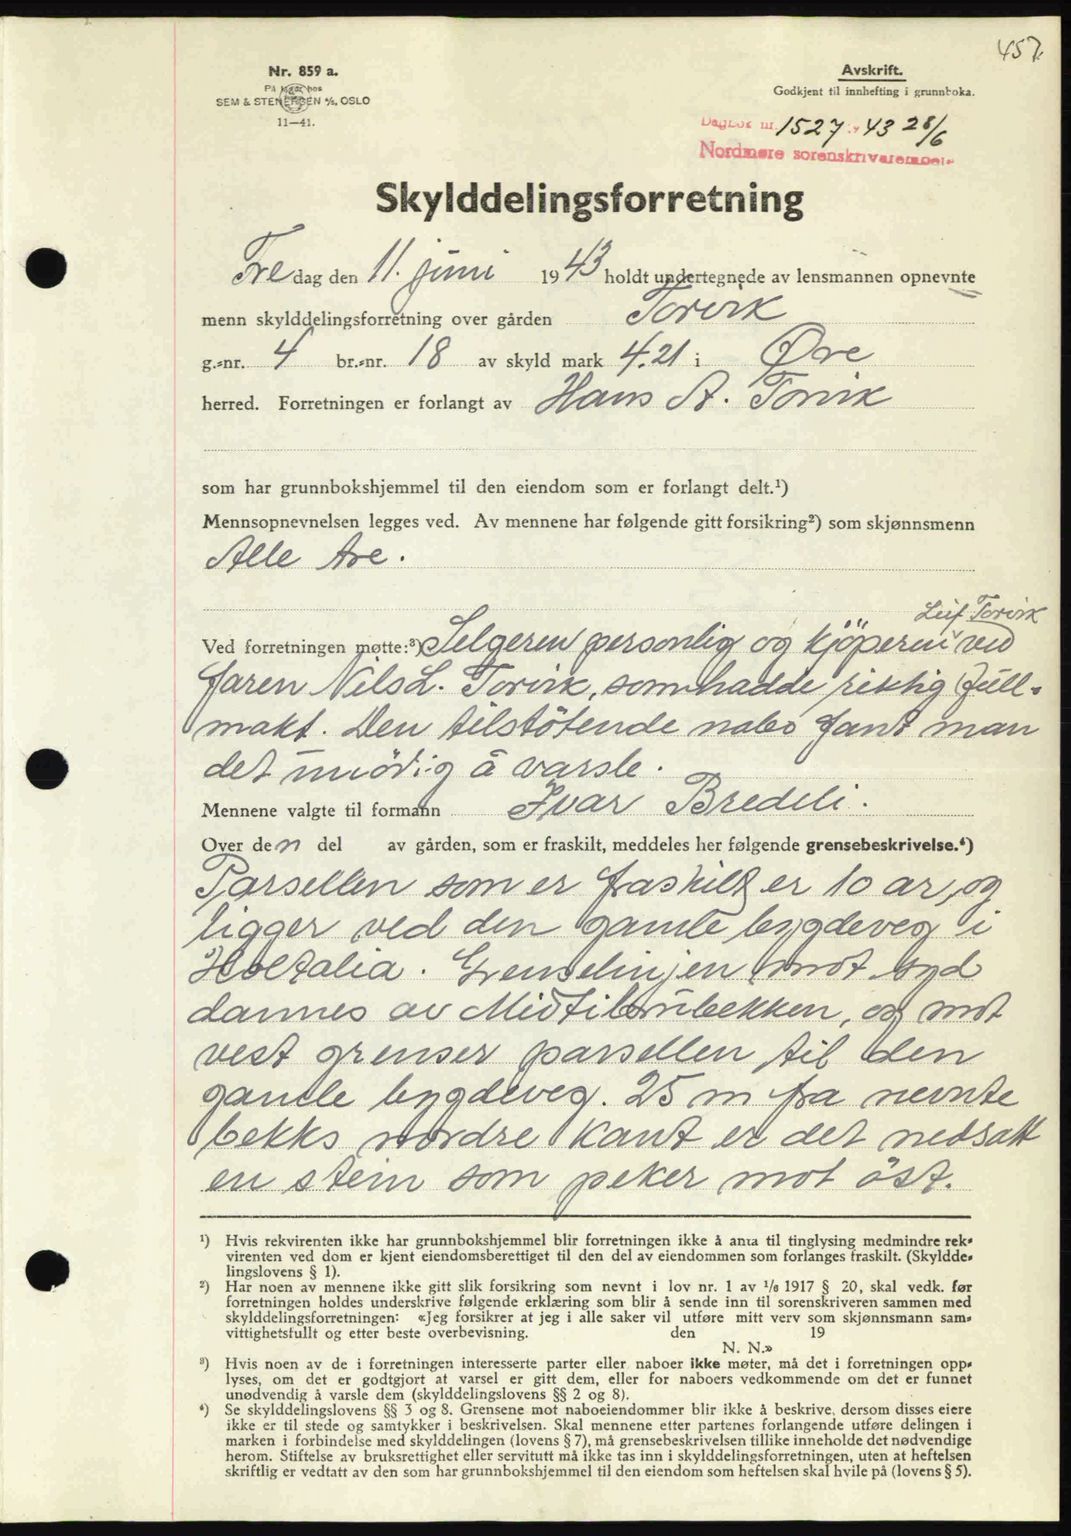 457.
Nr. 859 a.
På lager hos
SEM & STENERSEN A/S, OSLO
11—41.
Avskrift.
Godkjent til innhefting i grunnboka.
Dagbok nr. 1527 43 28/6
Nordmøre sorenskriverembete
Skylddelingsforretning
Fredag den 11. juni 1943 holdt undertegnede av lensmannen opnevnte
menn skylddelingsforretning over gården Torvik
g.-nr. 4 br.-nr. 18 av skyld mark 4.21 i Øre
herred. Forretningen er forlangt av Hans A. Torvik
som har grunnbokshjemmel til den eiendom som er forlangt delt.¹)
Mennsopnevnelsen legges ved. Av mennene har følgende gitt forsikring²) som skjønnsmenn
Alle tre.
Leif Torvik
Ved forretningen møtte:³) Selgeren personlig og kjöperen ved
faren Nils L. Torvik, som hadde riktig full-
makt. Den tilstötende nabo fant man
det unödig å varsle.
Mennene valgte til formann Ivar Bredeli.
Over den del av gården, som er fraskilt, meddeles her følgende grensebeskrivelse.⁴)
Parsellen som er fraskilt er 10 ar, og
ligger ved den gamle bygdeveg i
Grenselinjen mot syd
dannes av og mot
vest grenser parsellen til den
gamle bygdeveg. 25 m fra nevnte
bekks nordre kant er det nedsatt
en stein som peker mot öst.
¹) Hvis rekvirenten ikke har grunnbokshjemmel blir forretningen ikke å anta til tinglysing medmindre rek-
virenten ved dom er kjent eiendomsberettiget til den del av eiendommen som forlanges fraskilt. (Skyldde-
lingslovens § 1).
²) Har noen av mennene ikke gitt slik forsikring som nevnt i lov nr. 1 av 1/8 1917 § 20, skal vedk. før
forretningen holdes underskrive følgende erklæring som blir å sende inn til sorenskriveren sammen med
skylddelingsforretningen: «Jeg forsikrer at jeg i alle saker vil utføre mitt verv som skjønnsmann sam-
vittighetsfullt og etter beste overbevisning. den 19
N. N.»
³) Hvis noen av de i forretningen interesserte parter eller naboer ikke møter, må det i forretningen opp-
lyses, om det er godtgjort at varsel er gitt dem, eller for naboers vedkommende om det er funnet
unødvendig å varsle dem (skylddelingslovens §§ 2 og 8).
⁴) Se skylddelingslovens §§ 3 og 8. Grensene mot naboeiendommer blir ikke å beskrive, dersom disses eiere
ikke er til stede og samtykker i beskrivelsen. Skal mennene etter partenes forlangende utføre delingen i
marken i forbindelse med skylddelingen (lovens § 7), må grensebeskrivelsen tillike inneholde det nødvendige
herom. Stiftelse av bruksrettighet eller servitutt må ikke tas inn i skylddelingsforretningen, uten at heftelsen
skriftlig er vedtatt av den som har grunnbokshjemmel til den eiendom som heftelsen skal hvile på (lovens § 5).